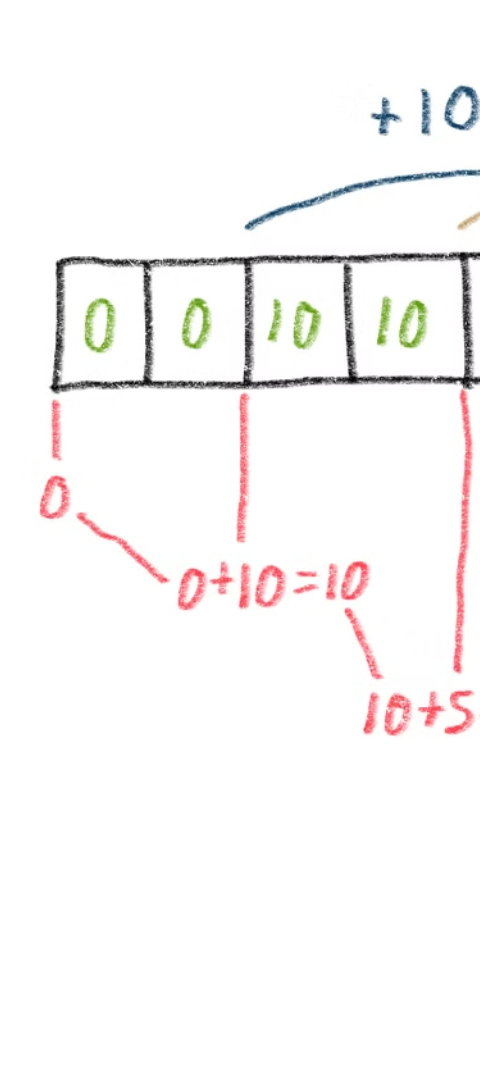 +10
0 0 10 10
0
0+10=10
10+5